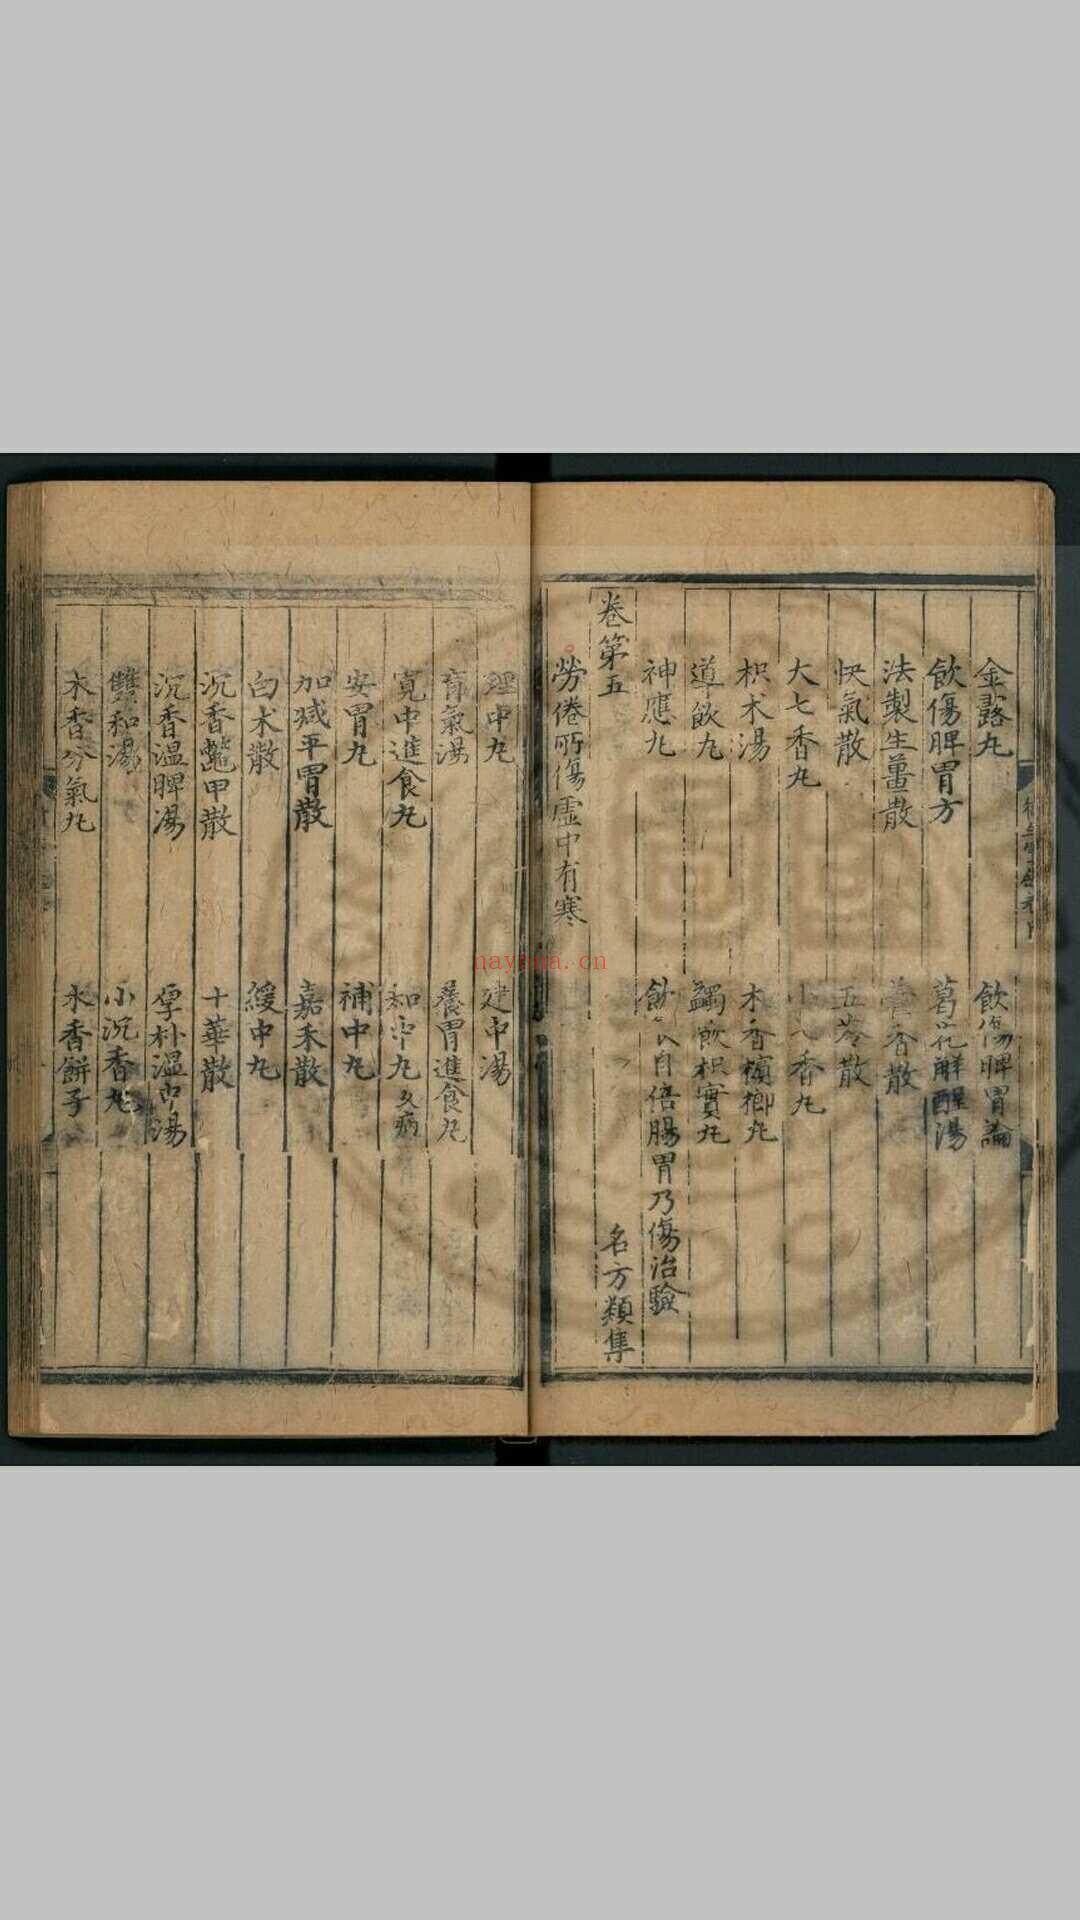 金露丸
飲傷脾胃論
飲傷脾胃方
葛花解酲湯
法製生薑散
藿香散
快氣散
五苓散
大七香丸
小七香丸
枳术湯
木香檳榔丸
導飲丸
蠲飲枳實丸
神應丸
飲食自倍腸胃乃傷治驗
卷第五
名方類集
勞倦所傷虛中有寒
理中丸
建中湯
育氣湯
養胃進食丸
寛中進食丸
和中丸久病
安胃丸
補中丸
加减平胃散
嘉禾散
白术散
緩中丸
沉香鼈甲散
十華散
沉香温脾湯
厚朴温中湯
雙和湯
小沉香丸
木香分氣丸
木香餅子
nayona.cn